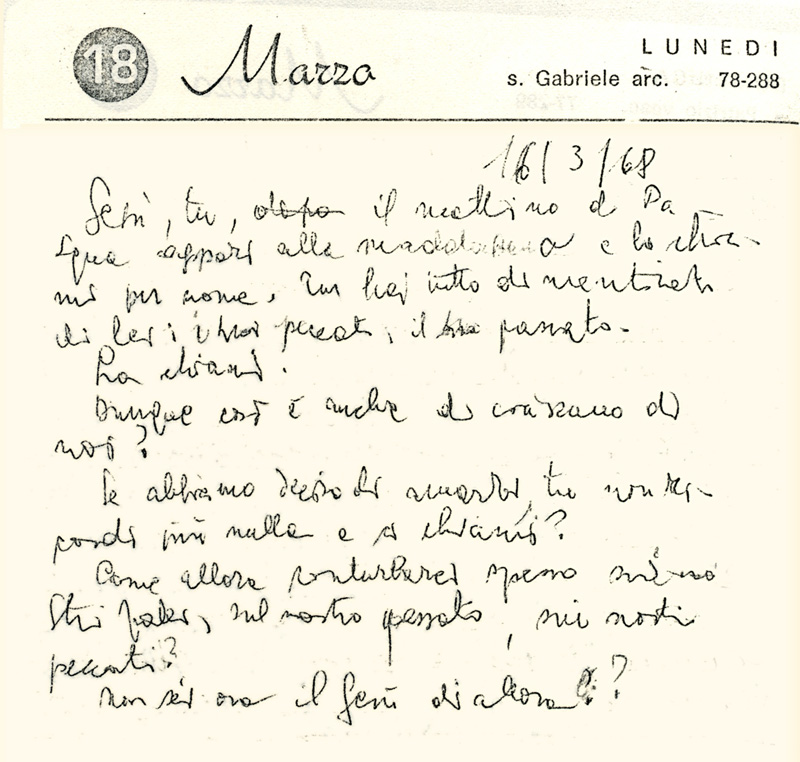 18 Marzo LUNEDI
s. Gabriele arc. 78-288
16/3/68
Gesù, tu, dopo il mattino di Pa
squa appari alla maddalena e la chia-
mi per nome. Tu hai tutto dimenticato
di lei: i suoi peccati, il suo passato.
La chiami.
Dunque così è anche di ciascuno di
noi?
Se abbiamo deciso di amarti, tu non
più nulla e ci chiami?
Come allora conturbarci spesso sui no
stri , sul nostro passato, sui nostri
peccati?
Non sei ora il Gesù di allora?